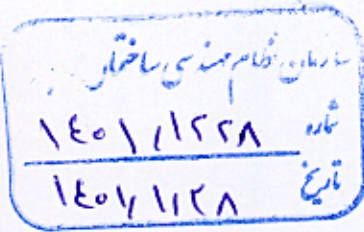 سازمان نظام مهندسی ساختمان
شماره ۱۴۰۱/۱۲۲۸
تاریخ ۱۴۰۱/۱/۲۸